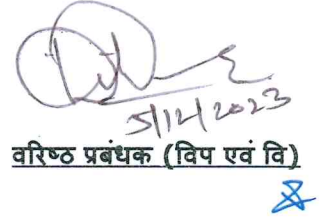 5/12/2023
वरिष्ठ प्रबंधक (विप एवं वि)